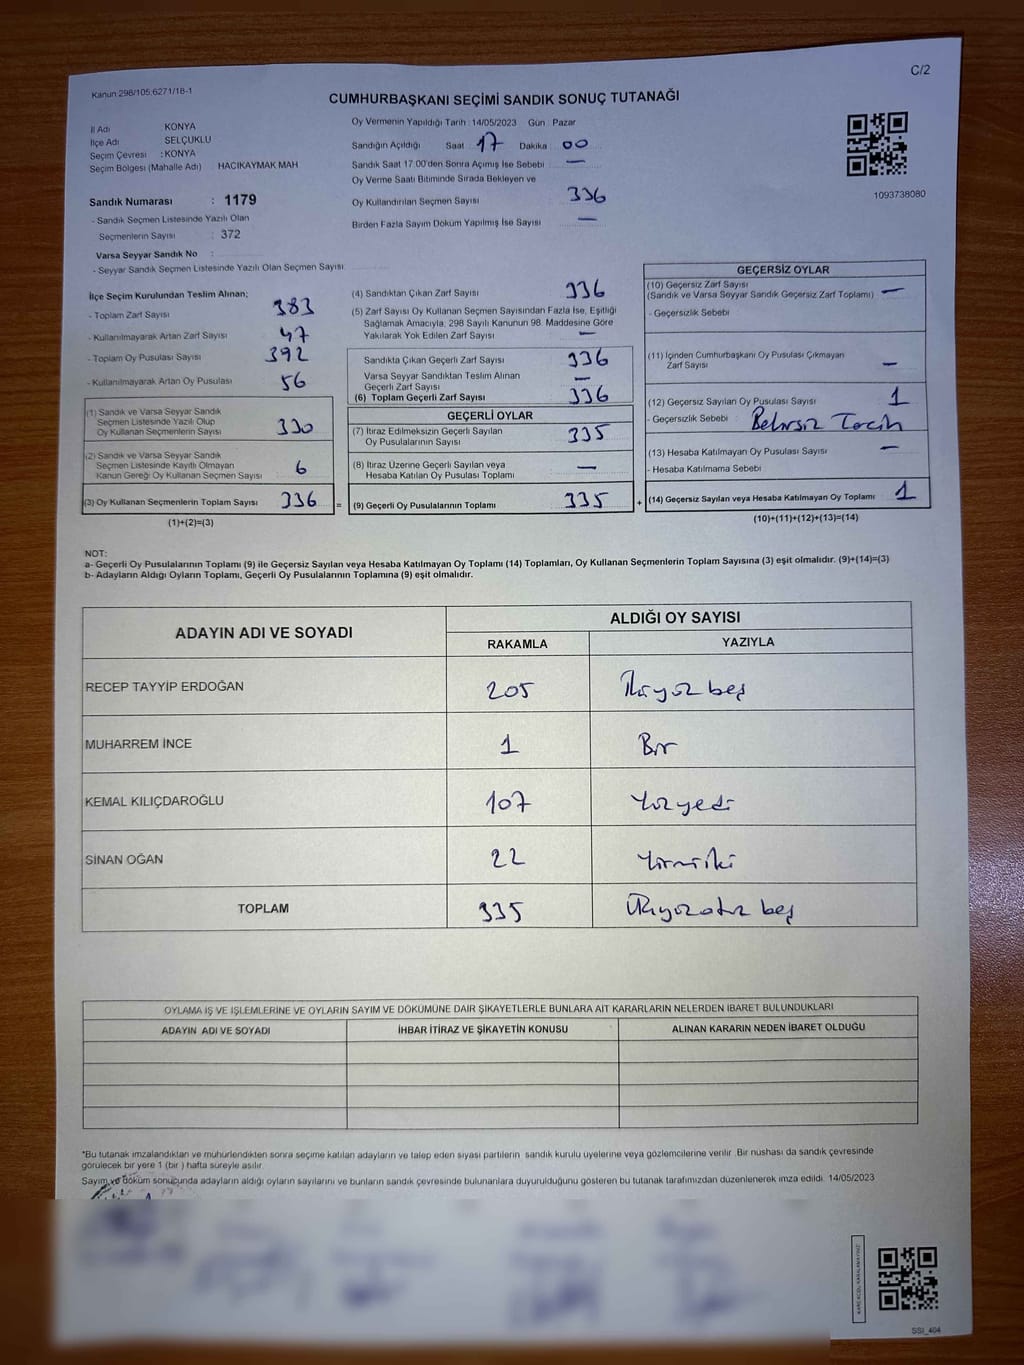 C/2
Kanun:298/105;6271/18-1
CUMHURBAŞKANI SEÇİMİ SANDIK SONUÇ TUTANAĞI
İl Adı KONYA
İlçe Adı SELÇUKLU
Seçim Çevresi : KONYA
Seçim Bölgesi (Mahalle Adı) : HACIKAYMAK MAH
Sandık Numarası : 1179
- Sandık Seçmen Listesinde Yazılı Olan
Seçmenlerin Sayısı : 372
Varsa Seyyar Sandık No :
- Seyyar Sandık Seçmen Listesinde Yazılı Olan Seçmen Sayısı
Oy Vermenin Yapıldığı Tarih : 14/05/2023 Gün : Pazar
Sandığın Açıldığı Saat 17 Dakika 00
Sandık Saat 17:00'den Sonra Açılmış İse Sebebi : —
Oy Verme Saati Bitiminde Sırada Bekleyen ve
Oy Kullandırılan Seçmen Sayısı 336
Birden Fazla Sayım Döküm Yapılmış İse Sayısı —
1093738080
İlçe Seçim Kurulundan Teslim Alınan;
- Toplam Zarf Sayısı 383
- Kullanılmayarak Artan Zarf Sayısı 47
- Toplam Oy Pusulası Sayısı 392
- Kullanılmayarak Artan Oy Pusulası 56
(1) Sandık ve Varsa Seyyar Sandık
Seçmen Listesinde Yazılı Olup
Oy Kullanan Seçmenlerin Sayısı 330
(2) Sandık ve Varsa Seyyar Sandık
Seçmen Listesinde Kayıtlı Olmayan
Kanun Gereği Oy Kullanan Seçmen Sayısı 6
(3) Oy Kullanan Seçmenlerin Toplam Sayısı 336 =
(1)+(2)=(3)
(4) Sandıktan Çıkan Zarf Sayısı 336
(5) Zarf Sayısı Oy Kullanan Seçmen Sayısından Fazla İse, Eşitliği
Sağlamak Amacıyla; 298 Sayılı Kanunun 98. Maddesine Göre
Yakılarak Yok Edilen Zarf Sayısı —
Sandıkta Çıkan Geçerli Zarf Sayısı 336
Varsa Seyyar Sandıktan Teslim Alınan
Geçerli Zarf Sayısı —
(6) Toplam Geçerli Zarf Sayısı 336
GEÇERLİ OYLAR
(7) İtiraz Edilmeksizin Geçerli Sayılan
Oy Pusulalarının Sayısı 335
(8) İtiraz Üzerine Geçerli Sayılan veya
Hesaba Katılan Oy Pusulası Toplamı —
(9) Geçerli Oy Pusulalarının Toplamı 335 +
GEÇERSİZ OYLAR
(10) Geçersiz Zarf Sayısı
(Sandık ve Varsa Seyyar Sandık Geçersiz Zarf Toplamı) —
- Geçersizlik Sebebi
(11) İçinden Cumhurbaşkanı Oy Pusulası Çıkmayan
Zarf Sayısı —
(12) Geçersiz Sayılan Oy Pusulası Sayısı 1
- Geçersizlik Sebebi Belirsiz Tercih
(13) Hesaba Katılmayan Oy Pusulası Sayısı —
- Hesaba Katılmama Sebebi
(14) Geçersiz Sayılan veya Hesaba Katılmayan Oy Toplamı 1
(10)+(11)+(12)+(13)=(14)
NOT:
a- Geçerli Oy Pusulalarının Toplamı (9) ile Geçersiz Sayılan veya Hesaba Katılmayan Oy Toplamı (14) Toplamları, Oy Kullanan Seçmenlerin Toplam Sayısına (3) eşit olmalıdır. (9)+(14)=(3)
b- Adayların Aldığı Oyların Toplamı, Geçerli Oy Pusulalarının Toplamına (9) eşit olmalıdır.
ADAYIN ADI VE SOYADI ALDIĞI OY SAYISI
RAKAMLA YAZIYLA
RECEP TAYYİP ERDOĞAN 205 İkiyüz beş
MUHARREM İNCE 1 Bir
KEMAL KILIÇDAROĞLU 107 Yüzyedi
SİNAN OĞAN 22 Yirmiiki
TOPLAM 335 Üçyüzotuz beş
OYLAMA İŞ VE İŞLEMLERİNE VE OYLARIN SAYIM VE DÖKÜMÜNE DAİR ŞİKAYETLERLE BUNLARA AİT KARARLARIN NELERDEN İBARET BULUNDUKLARI
ADAYIN ADI VE SOYADI İHBAR İTİRAZ VE ŞİKAYETİN KONUSU ALINAN KARARIN NEDEN İBARET OLDUĞU
*Bu tutanak imzalandıktan ve mühürlendikten sonra seçime katılan adayların ve talep eden siyasi partilerin sandık kurulu üyelerine veya gözlemcilerine verilir. Bir nüshası da sandık çevresinde
görülecek bir yere 1 (bir ) hafta süreyle asılır.
Sayım ve döküm sonucunda adayların aldığı oyların sayılarını ve bunların sandık çevresinde bulunanlara duyurulduğunu gösteren bu tutanak tarafımızdan düzenlenerek imza edildi. 14/05/2023
SSI_404